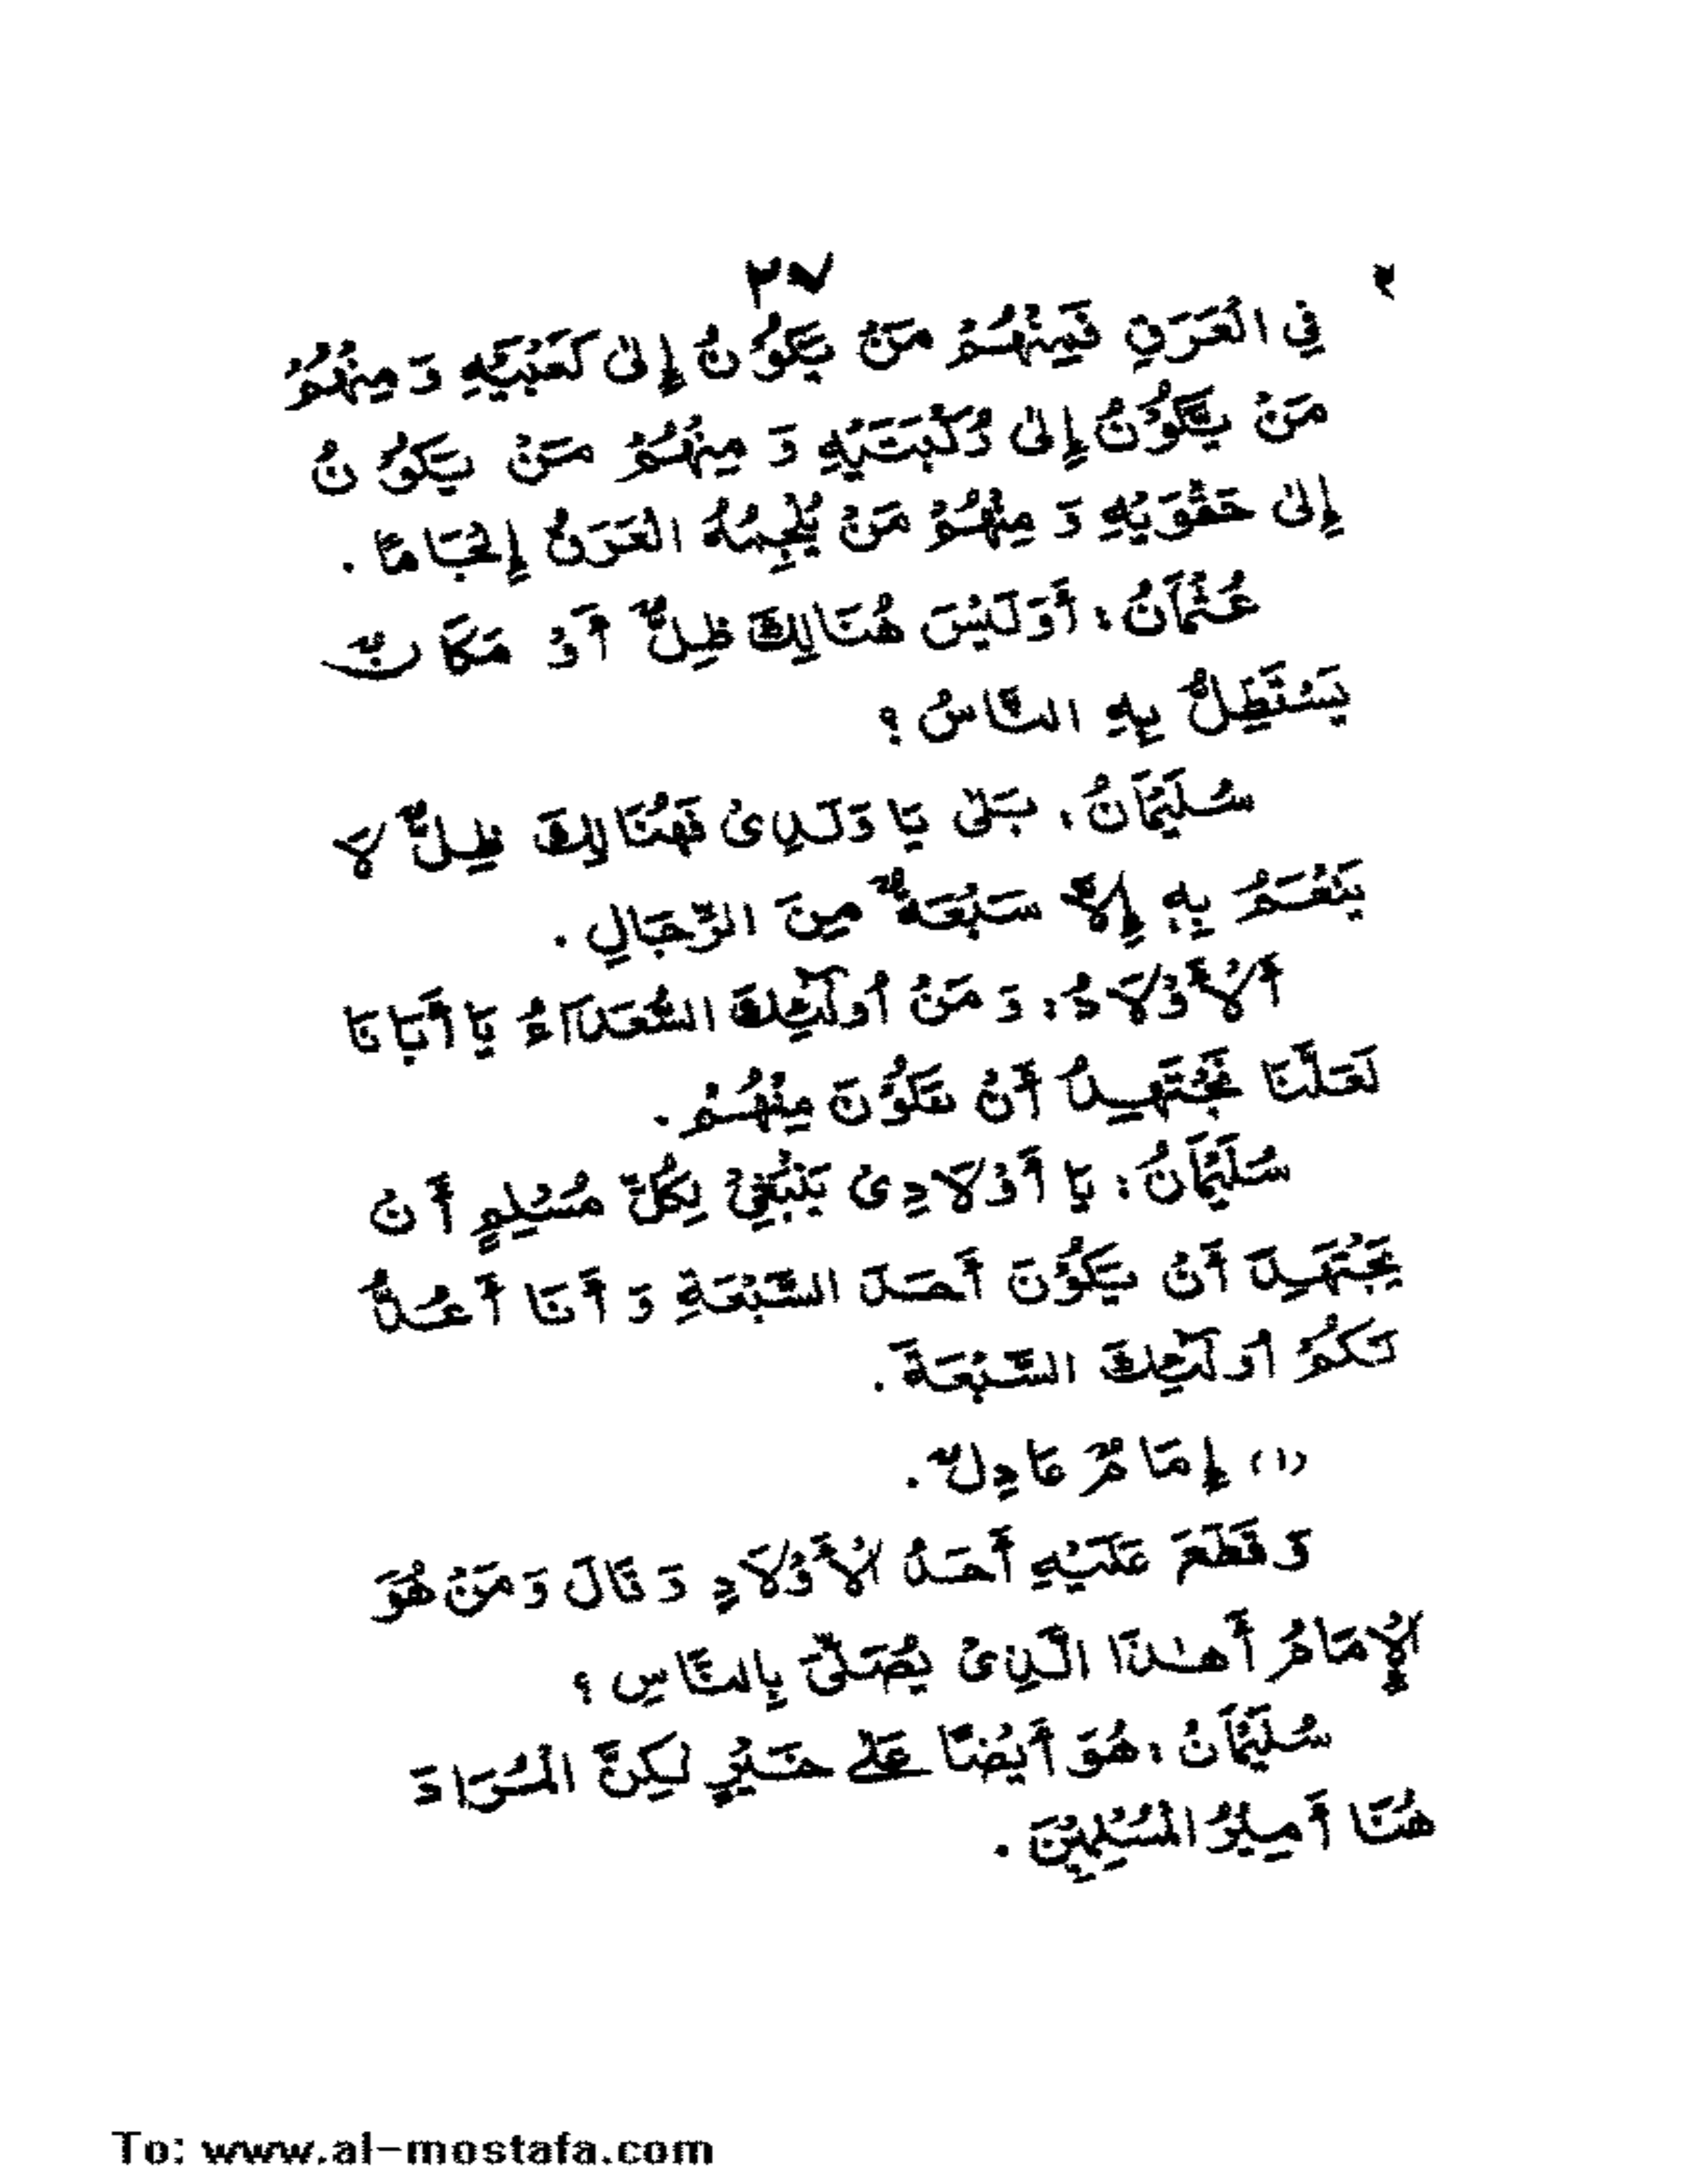 ٢٧
فِي الْعَرَقِ فَمِنْهُمْ مَنْ يَكُوْنُ إِلىٰ كَعْبَيْهِ وَ مِنْهُمْ
مَنْ يَكُوْنُ إِلىٰ رُكْبَتَيْهِ وَ مِنْهُمْ مَنْ يَكُوْنُ
إِلىٰ حَقْوَيْهِ وَ مِنْهُمْ مَنْ يُلْجِمُهُ الْعَرَقُ إِلْجَامًا .
عُثْمَانُ : أَوَلَيْسَ هُنَالِكَ ظِلٌّ أَوْ مَكَانٌ
يَسْتَظِلُّ بِهِ النَّاسُ ؟
سُلَيْمَانُ : بَلىٰ يَا وَلَدِىْ فَهُنَالِكَ ظِلٌّ لَا
يَنْعَمُ بِهِ إِلَّا سَبْعَةٌ مِنَ الرِّجَالِ .
أَلْأَوْلَادُ : وَ مَنْ أُولٰٓئِكَ السُّعَدَآءُ يَا أَبَانَا
لَعَلَّنَا نَجْتَهِدُ أَنْ نَكُوْنَ مِنْهُمْ .
سُلَيْمَانُ : يَا أَوْلَادِىْ يَنْبَغِيْ لِكُلِّ مُسْلِمٍ أَنْ
يَجْتَهِدَ أَنْ يَكُوْنَ أَحَدَ السَّبْعَةِ وَ أَنَا أَعُدُّ
لَكُمْ أُولٰٓئِكَ السَّبْعَةَ .
(١) إِمَامٌ عَادِلٌ .
وَ قَطَعَ عَلَيْهِ أَحَدُ الْأَوْلَادِ وَ قَالَ وَ مَنْ هُوَ
الْإِمَامُ أَهٰذَا الَّذِىْ يُصَلِّىْ بِالنَّاسِ ؟
سُلَيْمَانُ : هُوَ أَيْضًا عَلٰى خَيْرٍ لٰكِنَّ الْمُرَادَ
هُنَا أَمِيْرُ الْمُسْلِمِيْنَ .
To: www.al-mostafa.com